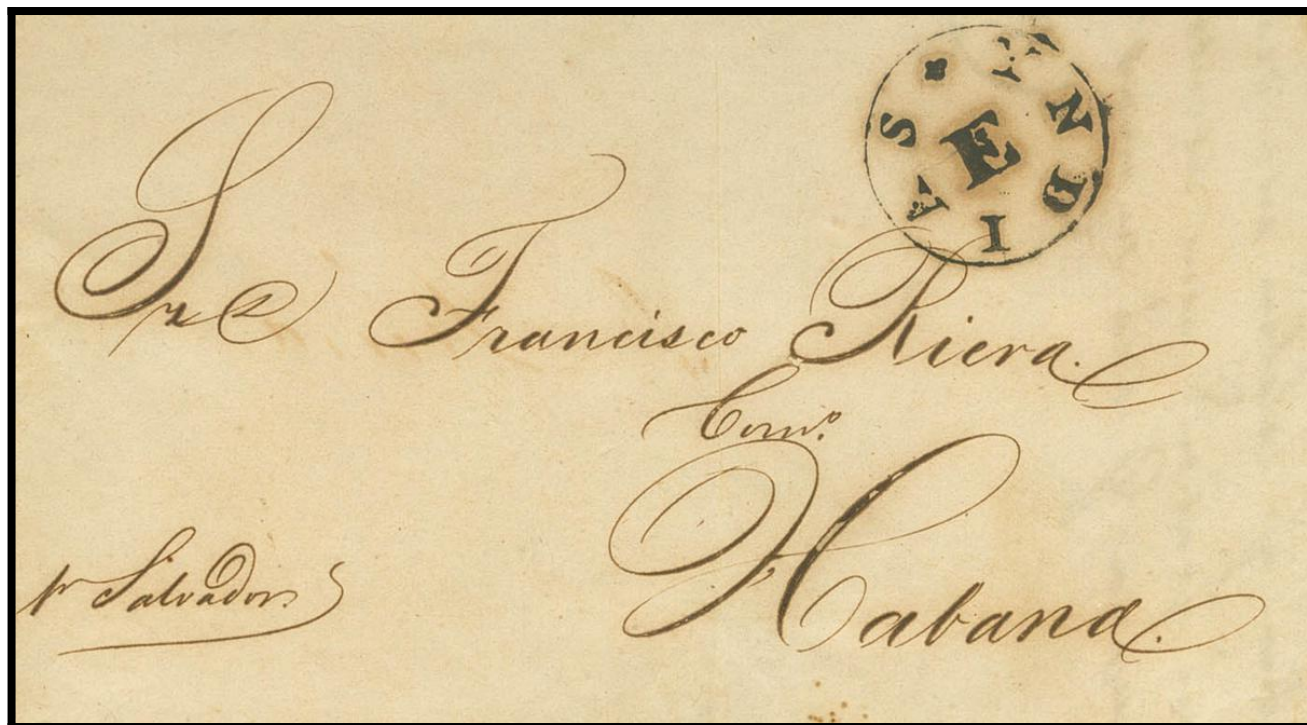 YNDIAS
E
Sr D Francisco Riera.
Comº
Habana.
pr Salvador